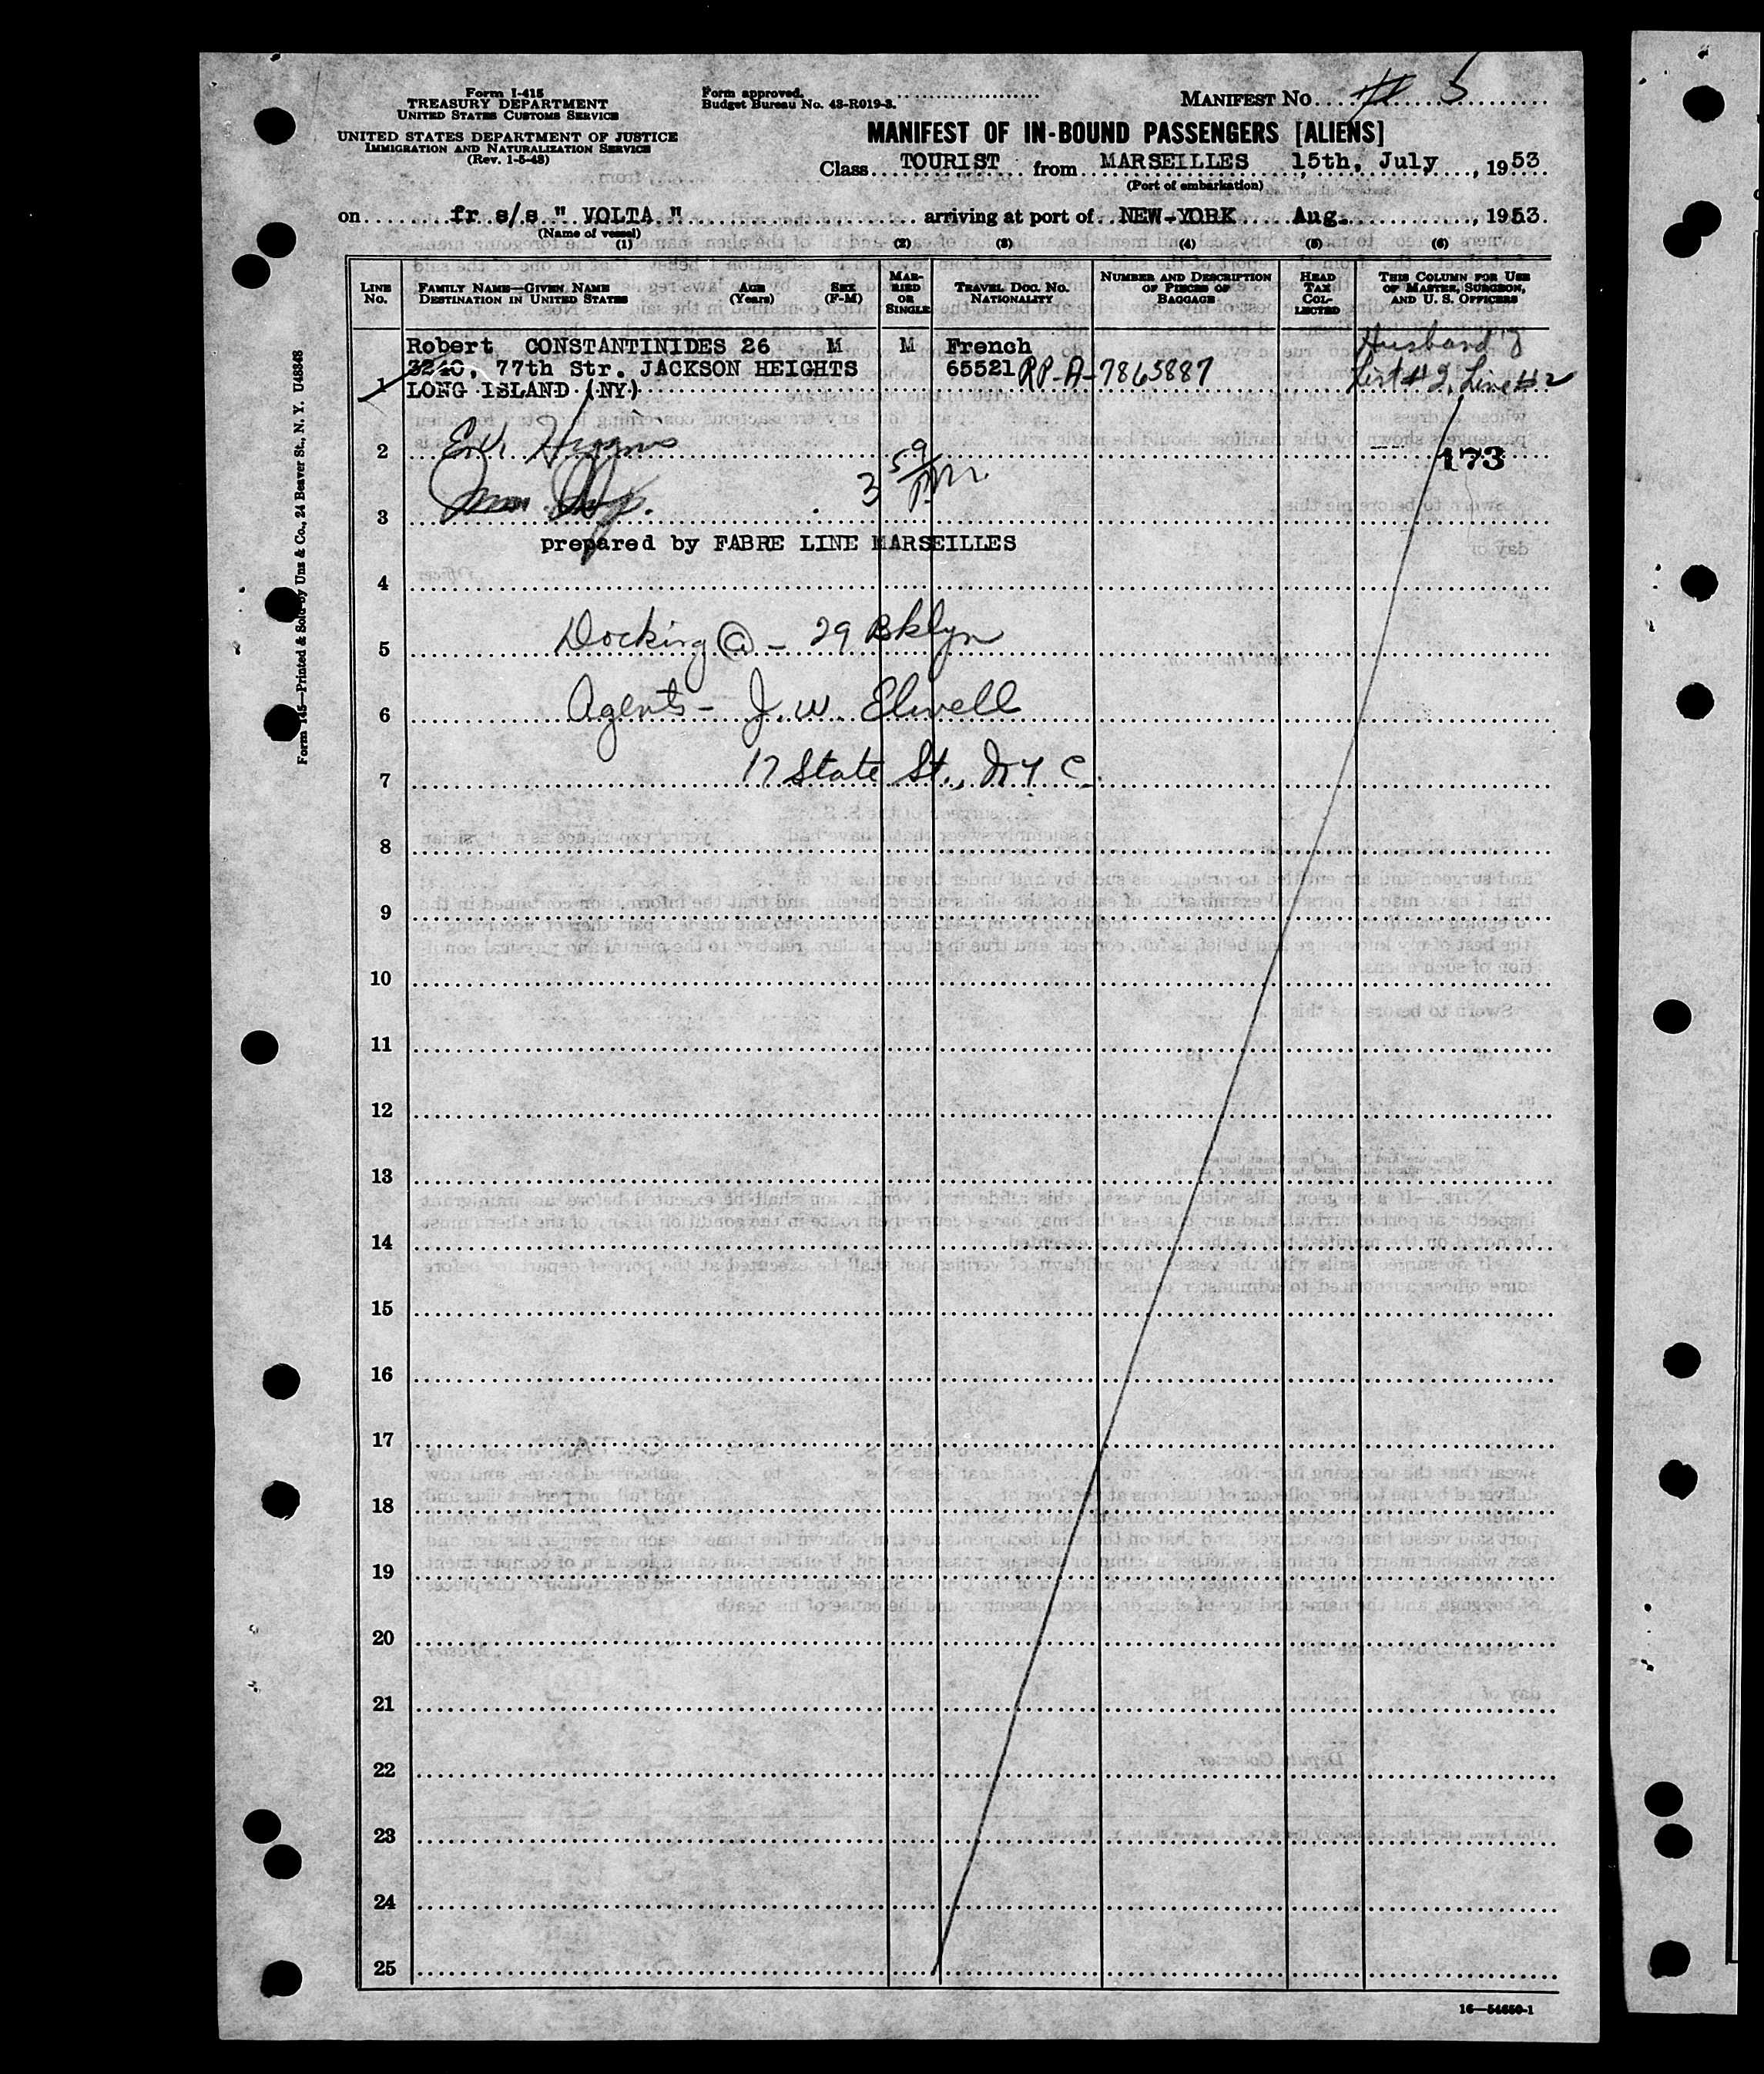 Form I-415
TREASURY DEPARTMENT
UNITED STATES CUSTOMS SERVICE
UNITED STATES DEPARTMENT OF JUSTICE
IMMIGRATION AND NATURALIZATION SERVICE
(Rev. 1-5-48)
Form approved.
Budget Bureau No. 43-R019-3.
MANIFEST NO. # 5
MANIFEST OF IN-BOUND PASSENGERS [ALIENS]
Class TOURIST from MARSEILLES 15th, July, 1953
(Port of embarkation)
on fr s/s " VOLTA " arriving at port of NEW-YORK Aug., 1953.
(Name of vessel)
(1) (2) (3) (4) (5) (6)
LINE NO.
FAMILY NAME—GIVEN NAME AGE (Years) SEX (F-M)
DESTINATION IN UNITED STATES
MARRIED OR SINGLE
TRAVEL DOC. NO. NATIONALITY
NUMBER AND DESCRIPTION OF PIECES OF BAGGAGE
HEAD TAX COLLECTED
THIS COLUMN FOR USE OF MASTER, SURGEON, AND U. S. OFFICERS
Robert CONSTANTINIDES 26 M M French Husband
3240, 77th Str. JACKSON HEIGHTS 65521 RP-A-7865887 List #2, Line #2
1 LONG ISLAND (NY)
2 Higgins 173
3 3 59 PM
prepared by FABRE LINE MARSEILLES
4
5 Docking @ - 29 Bklyn
6 Agents - J. W. Elwell
7 17 State St., N Y C.
8
9
10
11
12
13
14
15
16
17
18
19
20
21
22
23
24
25
16—54650-1
Form 145—Printed & Sold by Unz & Co., 24 Beaver St., N. Y. U48348